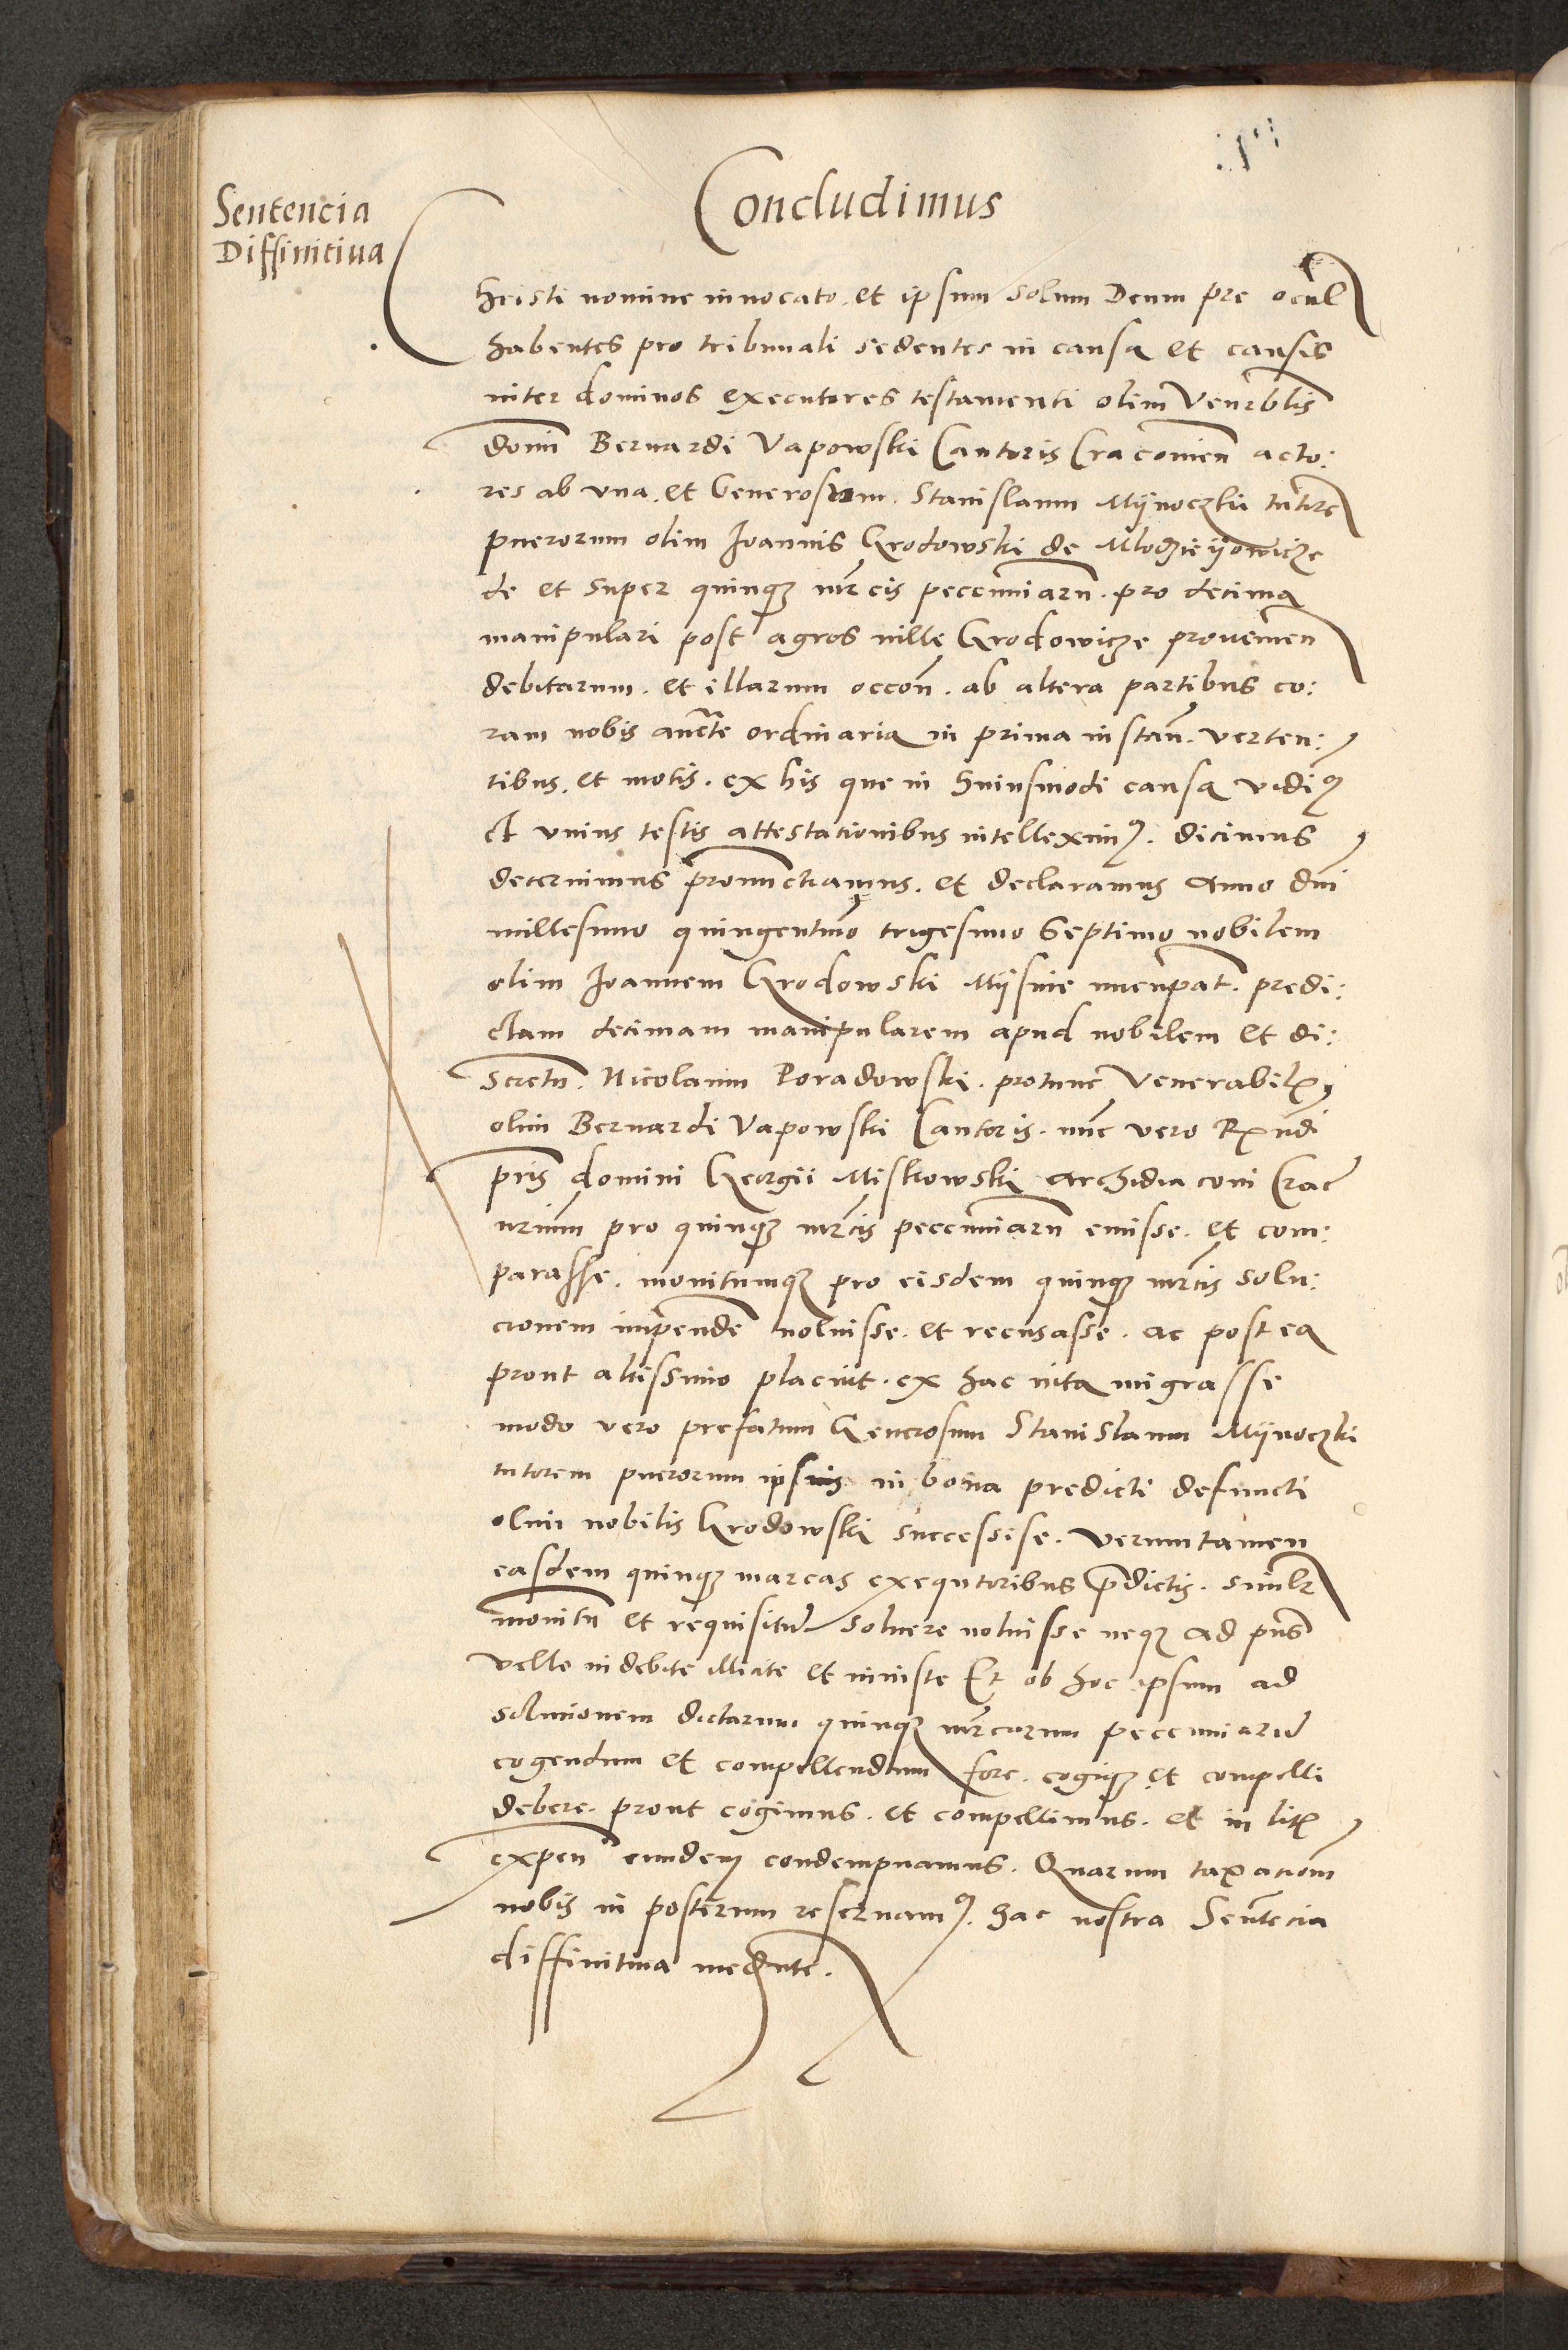 Concludimus
Sentencia
Diffinitiua
Christi nomine inuocato. et ipsum solum Deum pre ocul
habentes pro tribunali sedentes in causa et causis
inter dominos executores testamenti olim Venerblis
domi Bernardi Vapowski Cantoris Cracouien acto:
res ab vna. et Generosum. Stanislaum Mÿnoczki tutore
puerorum olim Joannis Grodowski de Mlodzieÿowicze
de et super quinq mrcis peccuniaru. pro decima
manipulari post agros uille Grodowicze prouenien
debitarum. et illarum occon. ab altera partibus co:
ram nobis aucte ordinaria in prima instan. verten:
tibus. et motis. ex his que in huiusmodi causa vidi9
et vnius testis attestationibus intellexim9. dicimus
decernimus pronunctiamus. et declaramus Anno dni
millesimo quingentmo trigesimo Septimo nobilem
olim Joannem Grodowski Mÿsnie nuncupat. predi:
ctam decimam manipularem apud nobilem et di:
scretu. Nicolaum Poradowski. protunc Venerabil
olim Bernardi Vapowski Cantoris. nunc vero Rndi
pris domini Georgii Miskowski Archidiaconi Crac
urium pro quinq mrcis peccuniaru emisse. et com:
parasse. monitumq pro eisdem quinq mrcis solu:
cionem impende noluisse. et recusasse. ac postea
prout altissimo placuit. ex hac uita migrasse
modo vero prefatum Generosum Stanislaum Mÿnoczki
tutorem puerorum ipsius in bona predicti defuncti
olim nobilis Grodowski successise. verumtamen
easdem quinq marcas exequtoribus pdictis. similr
monitu et requisitu soluere noluisse neq ad pns
velle indebite illicite et iniuste Et ob hoc ipsum ad
solucionem dictarum quinq mrcarum peccuniaru
cogendum et compellendum fore. cogiq et compelli
debere. prout cogimus. et compellimus. et in lit
expen eundem condempnamus. Quarum taxationem
nobis in posterum reseruam9. hac nostra Sentecia
diffinitiua mediante.